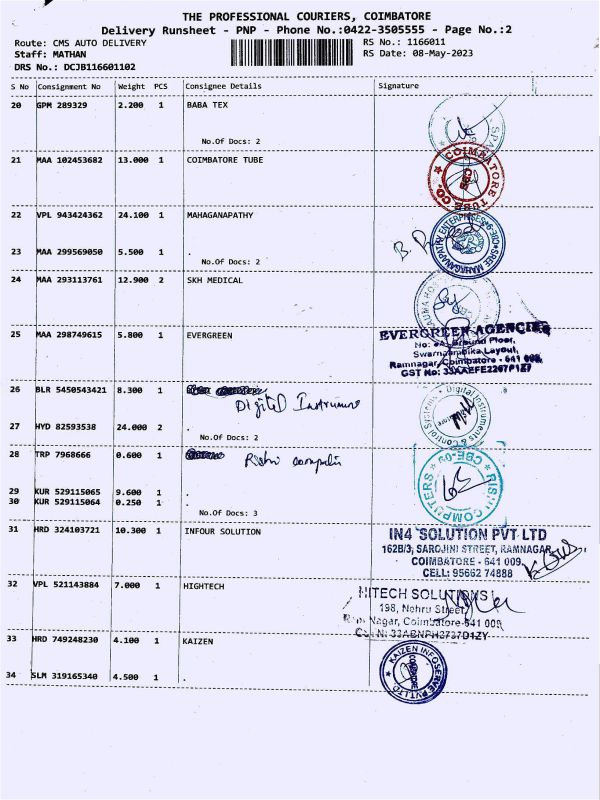 THE PROFESSIONAL COURIERS, COIMBATORE
Delivery Runsheet - PNP - Phone No.:0422-3505555 - Page No.:2
Route: CMS AUTO DELIVERY RS No.: 1166011
Staff: MATHAN RS Date: 08-May-2023
DRS No.: DCJB116601102
S No Consignment No Weight PCS Consignee Details Signature
20 GPM 289329 2.200 1 BABA TEX
No.Of Docs: 2
21 MAA 102453682 13.000 1 COIMBATORE TUBE
COIMBATORE TUBE CO.
22 VPL 943424362 24.100 1 MAHAGANAPATHY
SREE MAHAGANAPATHY ENTERPRISES CBE-9
23 MAA 299569050 5.500 1 .
No.Of Docs: 2
24 MAA 293113761 12.900 2 SKH MEDICAL
25 MAA 298749615 5.800 1 EVERGREEN
EVERGREEN AGENCIES
Ground Floor,
Swarnambika Layout,
Ramnagar, Coimbatore - 641 009.
GST No: 33AAEFE2267P1Z7
26 BLR 5450543421 8.300 1
Digital Instrumens
Digital Instruments & Control Systems
27 HYD 82593538 24.000 2
No.Of Docs: 2
28 TRP 7968666 0.600 1
Rishi
RISHI COMPUTERS CBE-09
29 KUR 529115065 9.600 1 .
30 KUR 529115064 0.250 1 .
No.Of Docs: 3
31 HRD 324103721 10.300 1 INFOUR SOLUTION
IN4 SOLUTION PVT LTD
162B/3, SAROJINI STREET, RAMNAGAR,
COIMBATORE - 641 009.
CELL: 95662 74888
32 VPL 521143884 7.000 1 HIGHTECH
HITECH SOLUTIONS
198, Nehru Street,
Ram Nagar, Coimbatore-641 009
33 HRD 749248230 4.100 1 KAIZEN
KAIZEN INFOSERVE PVT LTD
COIMBATORE
34 SLM 319165340 4.500 1 .